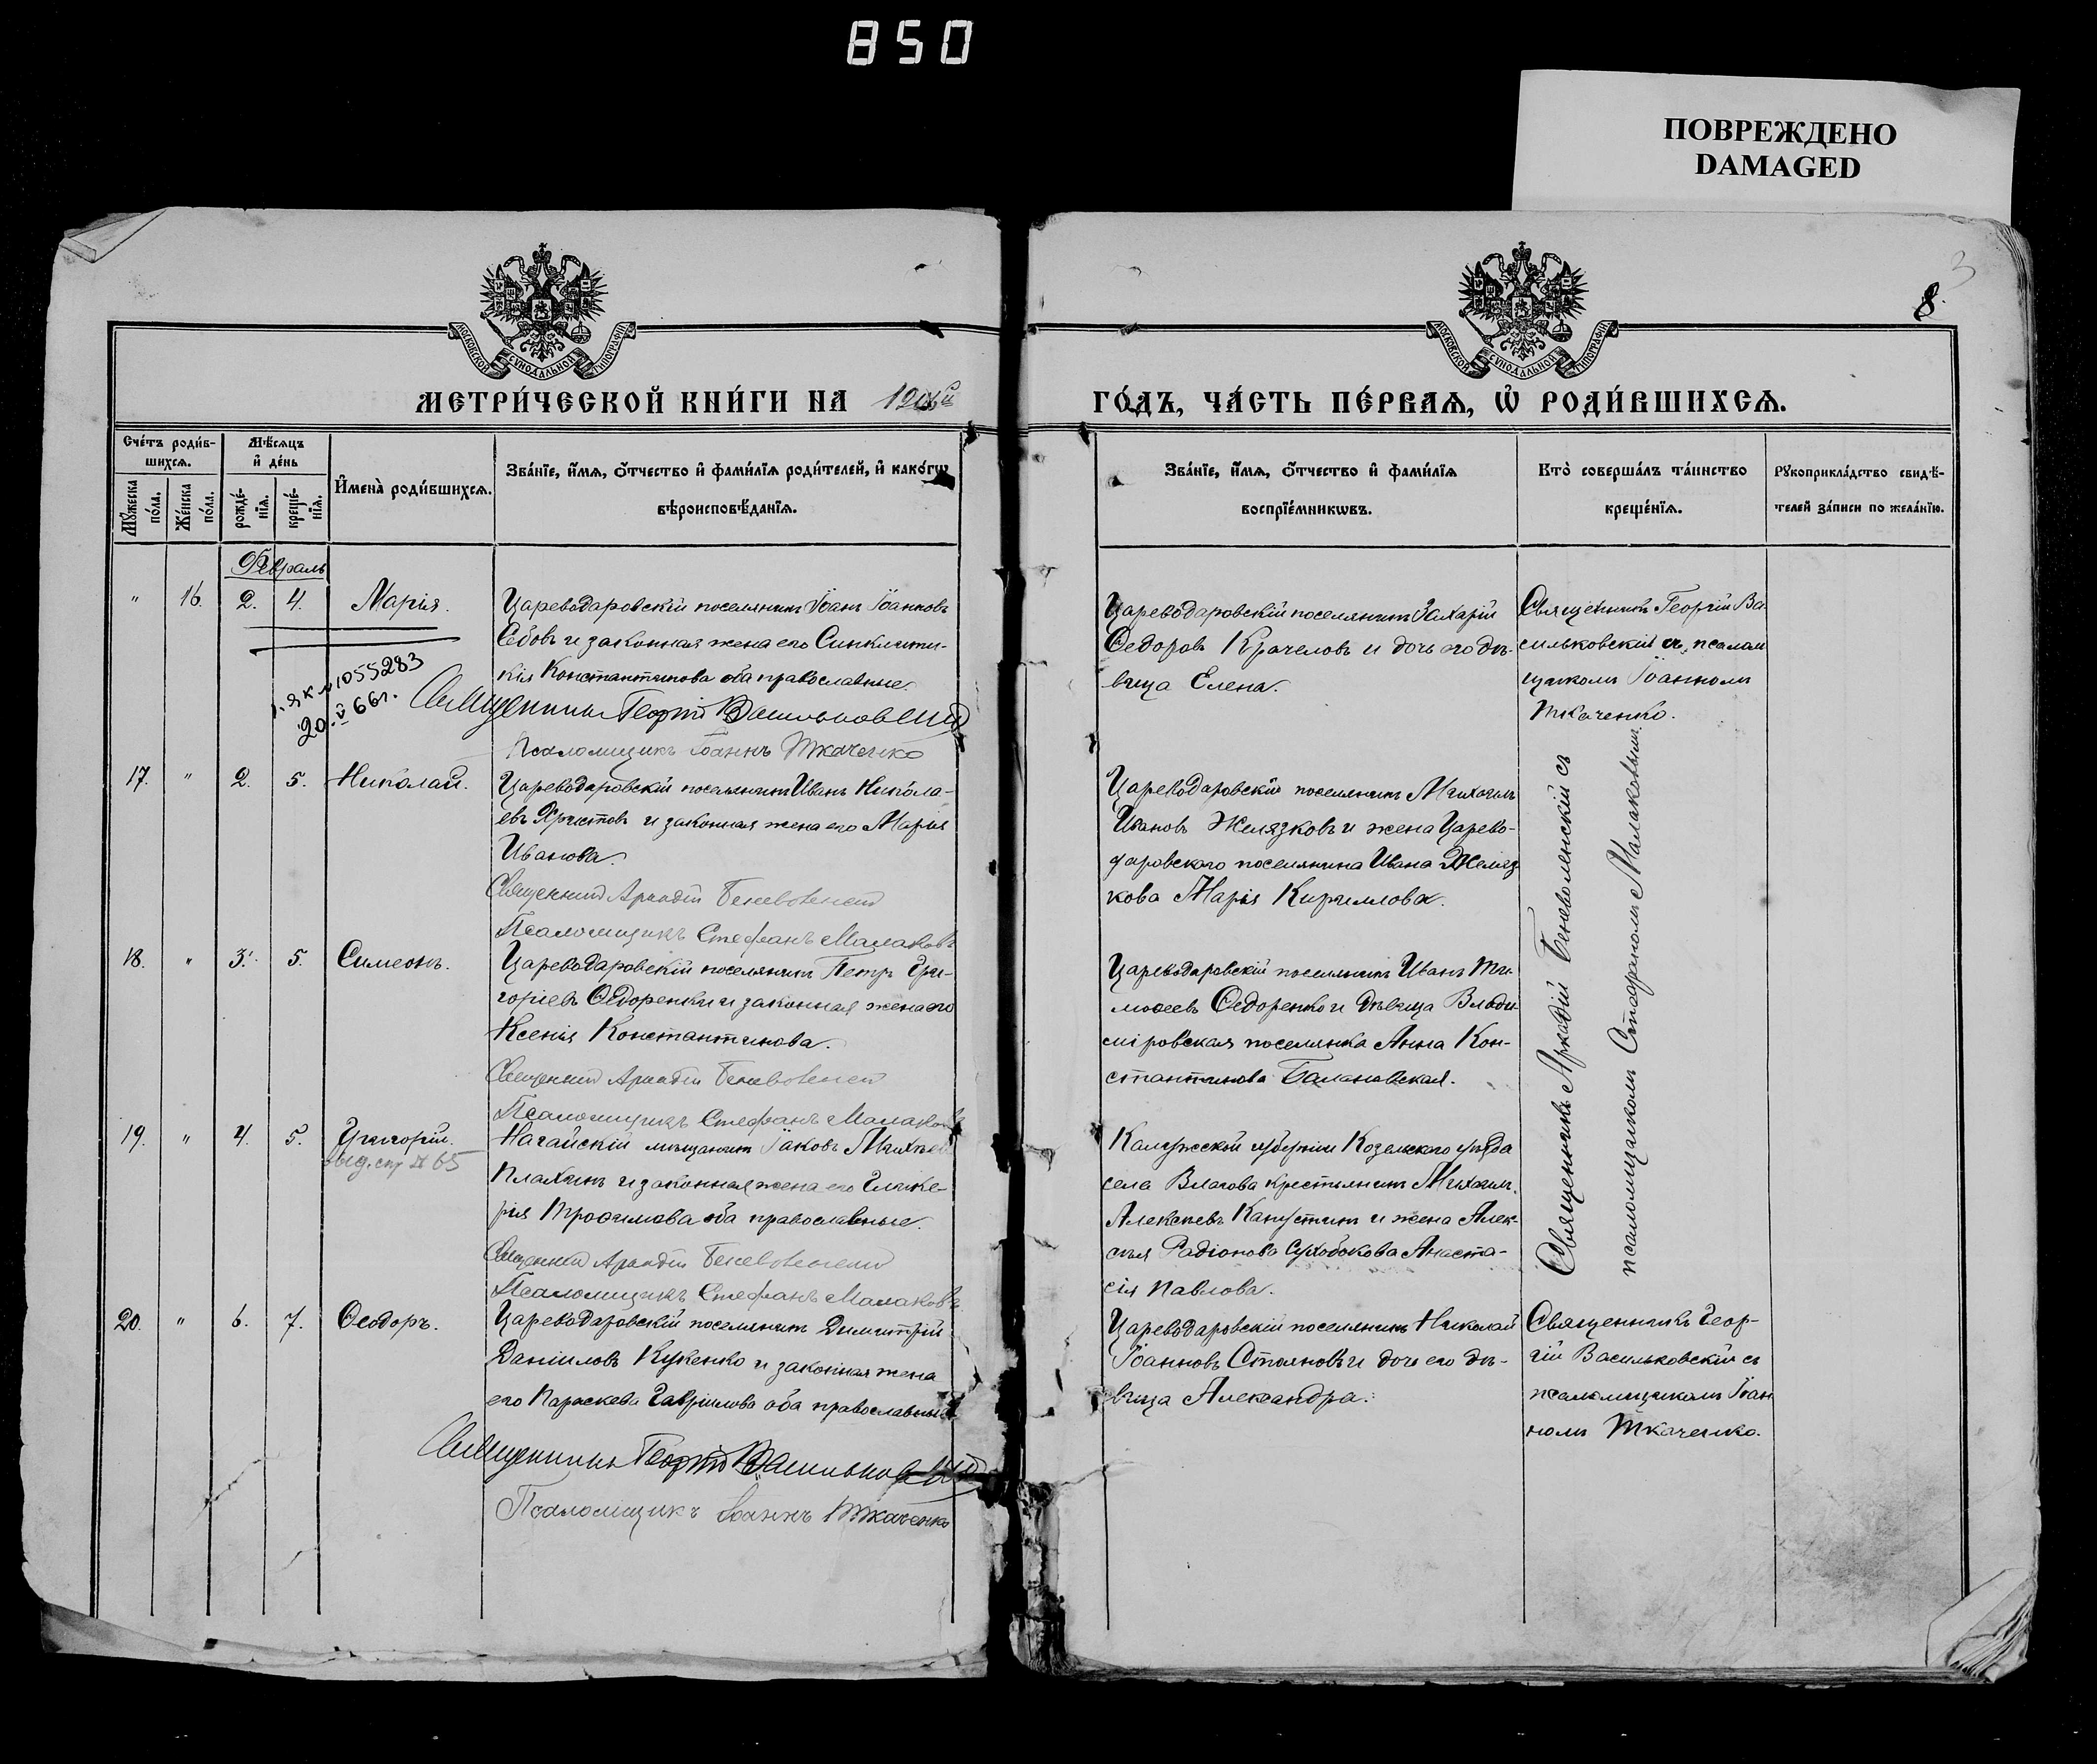 850
ПОВРЕЖДЕНО
DAMAGED
8.
МОСКОВСКОЙ СѴНОДАЛЬНОЙ ТИПОГРАФІИ
МОСКОВСКОЙ СѴНОДАЛЬНОЙ ТИПОГРАФІИ
МЕТРИ́ЧЕСКОЙ КНИ́ГИ НА
ГО́ДЪ, ЧА́СТЬ ПЕ́РВАѦ, Ѽ РОДИ́ВШИХСѦ.
Сче́тъ роди́в-
шихсѧ.
Мѣ́сѧцъ
и҆ де́нь
Мꙋ́жеска
по́ла.
Же́нска
по́ла.
рожде́-
нїѧ.
креще́-
нїѧ.
И҆мена̀ роди́вшихсѧ.
Зва́нїе, и҆́мѧ, ѻ҆́тчество и҆ фами́лїѧ роди́телей, и҆ како́гѡ
вѣроисповѣ́данїѧ.
Зва́нїе, и҆́мѧ, ѻ҆́тчество и҆ фами́лїѧ
воспрїе́мникѡвъ.
Кто̀ соверша́лъ та́инство
креще́нїѧ.
Рꙋкоприкла́дство свидѣ́-
телей за́писи по жела́нїю.
Февраль
" 16. 2. 4. Марія.
Цареводаровскій поселянинъ Іоанъ Іоанновъ
Себовъ и законная жена его Синклити-
кія Константинова оба православные.
1055283
20. V 66 г.
Священникъ Георгій Васильковскій
Псаломщикъ Іоаннъ Ткаченко
Цареводаровскій поселянинъ Захарій
Ѳедоровъ Крачеловъ и дочь его дѣ-
вица Елена.
Священникъ Георгій Ва-
сильковскій съ псалом
щикомъ Іоанномъ
Ткаченко.
17. " 2. 5. Николай.
Цареводаровскій поселянинъ Иванъ Никола-
евъ Христовъ и законная жена его Марія
Иванова.
Священникъ Аркадій Беневоленскій
Псаломщикъ Стефанъ Малаковъ
Цареводаровскій поселянинъ Михаилъ
Ивановъ Желязковъ и жена Царево-
даровского поселянина Ивана Желяз
кова Марія Кириллова.
Священникъ Аркадій Беневоленскій съ
псаломщикомъ Стефаномъ Малаковымъ.
18. " 3. 5. Симеонъ.
Цареводаровскій поселянинъ Петръ Гри-
горіевъ Ѳедоренко и законная жена его
Ксенія Константинова.
Священникъ Аркадій Беневоленскій
Псаломщикъ Стефанъ Малаковъ
Цареводаровскій поселянинъ Иванъ Ти-
моѳеевъ Ѳедоренко и дѣвица Влади-
міровская поселянка Анна Кон-
стантинова Балановская.
19. " 4. 5. Григорій.
65
Ногайскій мѣщанинъ Іаковъ Михѣев
Плахинъ и законная жена его Глике-
рія Трофимова оба православные.
Священникъ Аркадій Беневоленскій
Псаломщикъ Стефанъ Малаковъ
Калужской губерніи Козельского уѣзда
села Власова крестьянинъ Михаилъ
Алексѣевъ Капустинъ и жена Алек-
сѣя Радіонова Сухобокова Анаста-
сія Павлова.
20. " 6. 7. Ѳеодоръ.
Цареводаровскій поселянинъ Димитрій
Даніиловъ Кукенко и законная жена
его Параскева Гавріилова оба православные
Священникъ Георгій Васильковскій
Псаломщикъ Іоаннъ Ткаченко
Цареводаровскій поселянинъ Николай
Іоанновъ Стояновъ и дочь его дѣ-
вица Александра.
Священникъ Геор-
гій Васильковскій съ
псаломщикомъ Іоан
номъ Ткаченко.